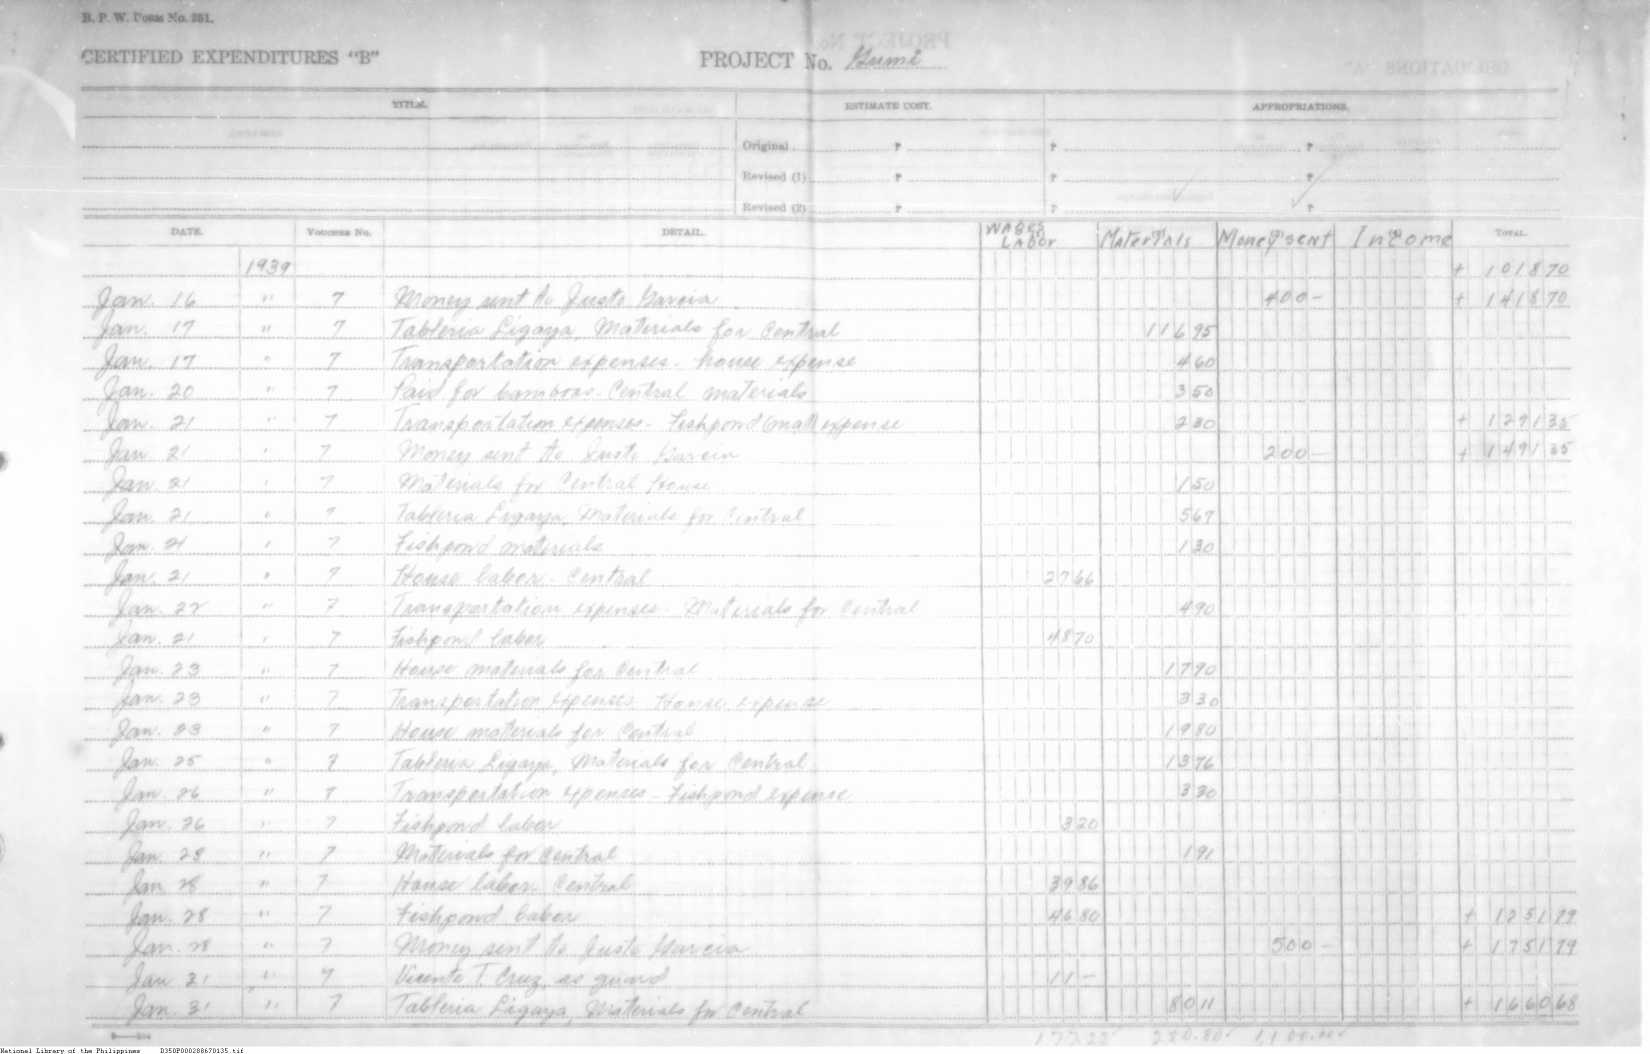 B. P. W. Form No. 251.
CERTIFIED EXPENDITURES "B" PROJECT No. Gumi
TITLE. ESTIMATE COST. APPROPRIATIONS.
Original ₱ ₱ ₱
Revised (1) ₱ ₱
Revised (2) ₱ ₱ ₱
DATE. Voucher No. DETAIL. WAGES LABOR Materials Money sent Income TOTAL.
1939 + 1018 70
Jan. 16 " 7 Money sent to Justo Garcia 400 - + 1418 70
Jan. 17 " 7 Tableria Ligaya, Materials for Central 116 95
Jan. 17 " 7 Transportation expenses - house expense 4 60
Jan. 20 " 7 Paid for bamboos - Central materials 3 50
Jan. 21 " 7 Transportation expenses - Fishpond (small) expense 2 30 + 1291 35
Jan. 21 " 7 Money sent to Justo Garcia 200 - + 1491 35
Jan. 21 " 7 Materials for Central House 1 50
Jan. 21 " 7 Tableria Ligaya, Materials for Central 5 67
Jan. 21 " 7 Fishpond materials 1 30
Jan. 21 " 7 House labor - Central 27 66
Jan. 22 " 7 Transportation expenses - Materials for Central 4 90
Jan. 21 " 7 Fishpond labor 48 70
Jan. 23 " 7 House materials for Central 17 90
Jan. 23 " 7 Transportation expenses House expense 3 30
Jan. 23 " 7 House materials for Central 19 80
Jan. 25 " 7 Tableria Ligaya, Materials for Central 13 76
Jan. 26 " 7 Transportation expenses - Fishpond expense 3 30
Jan. 26 " 7 Fishpond labor 3 20
Jan. 28 " 7 Materials for Central 1 91
Jan. 28 " 7 House labor Central 39 86
Jan. 28 " 7 Fishpond labor 46 80 + 1251 79
Jan. 28 " 7 Money sent to Justo Garcia 500 - + 1751 79
Jan. 31 " 7 Vicente T. Cruz, as guard 11 -
Jan. 31 " 7 Tableria Ligaya, Materials for Central 80 11 + 1660 68
177.22 280.80 1,100.00
National Library of the Philippines D350P000288670135.tif